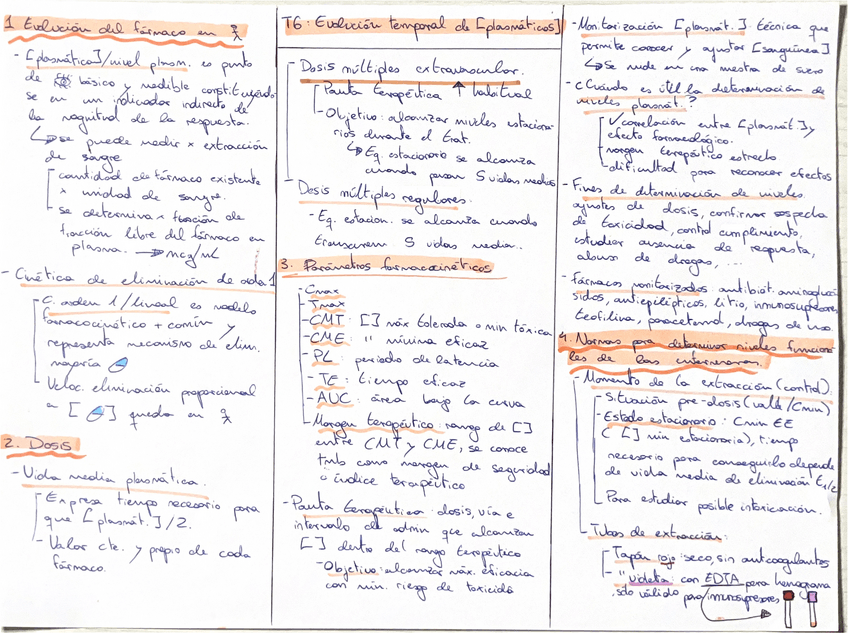 1 Evolución del fármaco en
- [plasmática]/nivel plasm. es punto
de básico y medible constituyendo
se en un indicador indirecto de
la magnitud de la respuesta.
↳ se puede medir x extracción
de sangre
cantidad de fármaco existente
x unidad de sangre.
se determina x función de
fracción libre del fármaco en
plasma. → mcg/mL
- Cinética de eliminación de orden 1
C. orden 1/lineal es modelo
farmacocinético + común y
representa mecanismo de elim.
mayoría
Veloc. eliminación proporcional
a [ ] queda en
2. Dosis
- Vida media plasmática.
Expresa tiempo necesario para
que [plasmát.]/2.
- Valor cte. y propio de cada
fármaco.
T6: Evolución temporal de [plasmáticas]
- Dosis múltiples extravascular.
Pauta terapéutica ↑ habitual
- Objetivo: alcanzar niveles estaciona
rios durante el trat.
↳ Eq. estacionario se alcanza
cuando pasan 5 vidas medias
- Dosis múltiples regulares.
- Eq. estacion. se alcanza cuando
transcurren 5 vidas media.
3. Parámetros farmacocinéticos
- Cmax
- Tmax
- CMT: [] máx tolerada o min tóxica
- CME: " mínima eficaz
- PL: periodo de latencia
- TE: tiempo eficaz
- AUC: área bajo la curva
- Margen terapéutico: rango de []
entre CMT y CME, se conoce
tmb como margen de seguridad
o índice terapéutico
- Pauta terapéutica: dosis, vía e
intervalo de admin que alcanzan
[] dentro del rango terapéutico
- Objetivo: alcanzar máx. eficacia
con mín. riesgo de toxicidad
- Monitorización [plasmát.]: técnica que
permite conocer y ajustar [sanguínea]
↳ Se mide en una muestra de suero
- ¿Cuándo es útil la determinación de
niveles plasmát.?
✓ correlación entre [plasmát.] y
efecto farmacológico.
- margen terapéutico estrecho
- dificultad para reconocer efectos
- Fines de determinación de niveles:
ajustes de dosis, confirmar sospecha
de toxicidad, control cumplimiento,
estudiar ausencia de respuesta,
abuso de drogas, ...
- Fármacos monitorizados: antibiót. aminoglucó
sidos, antiepilépticos, litio, inmunosupresores,
teofilina, paracetamol, drogas de uso.
4. Normas para determinar niveles funciona
les de las enfermeras.
- Momento de la extracción (control):
- Situación pre-dosis (valle/Cmin)
- Estado estacionario: Cmin EE
([] min estacionaria), tiempo
necesario para conseguirlo depende
de vida media de eliminación t1/2
Para estudiar posible intoxicación.
- Tubos de extracción:
Tapón rojo: seco, sin anticoagulantes
- " violeta: con EDTA para hemograma
, solo válido para inmunosupresores